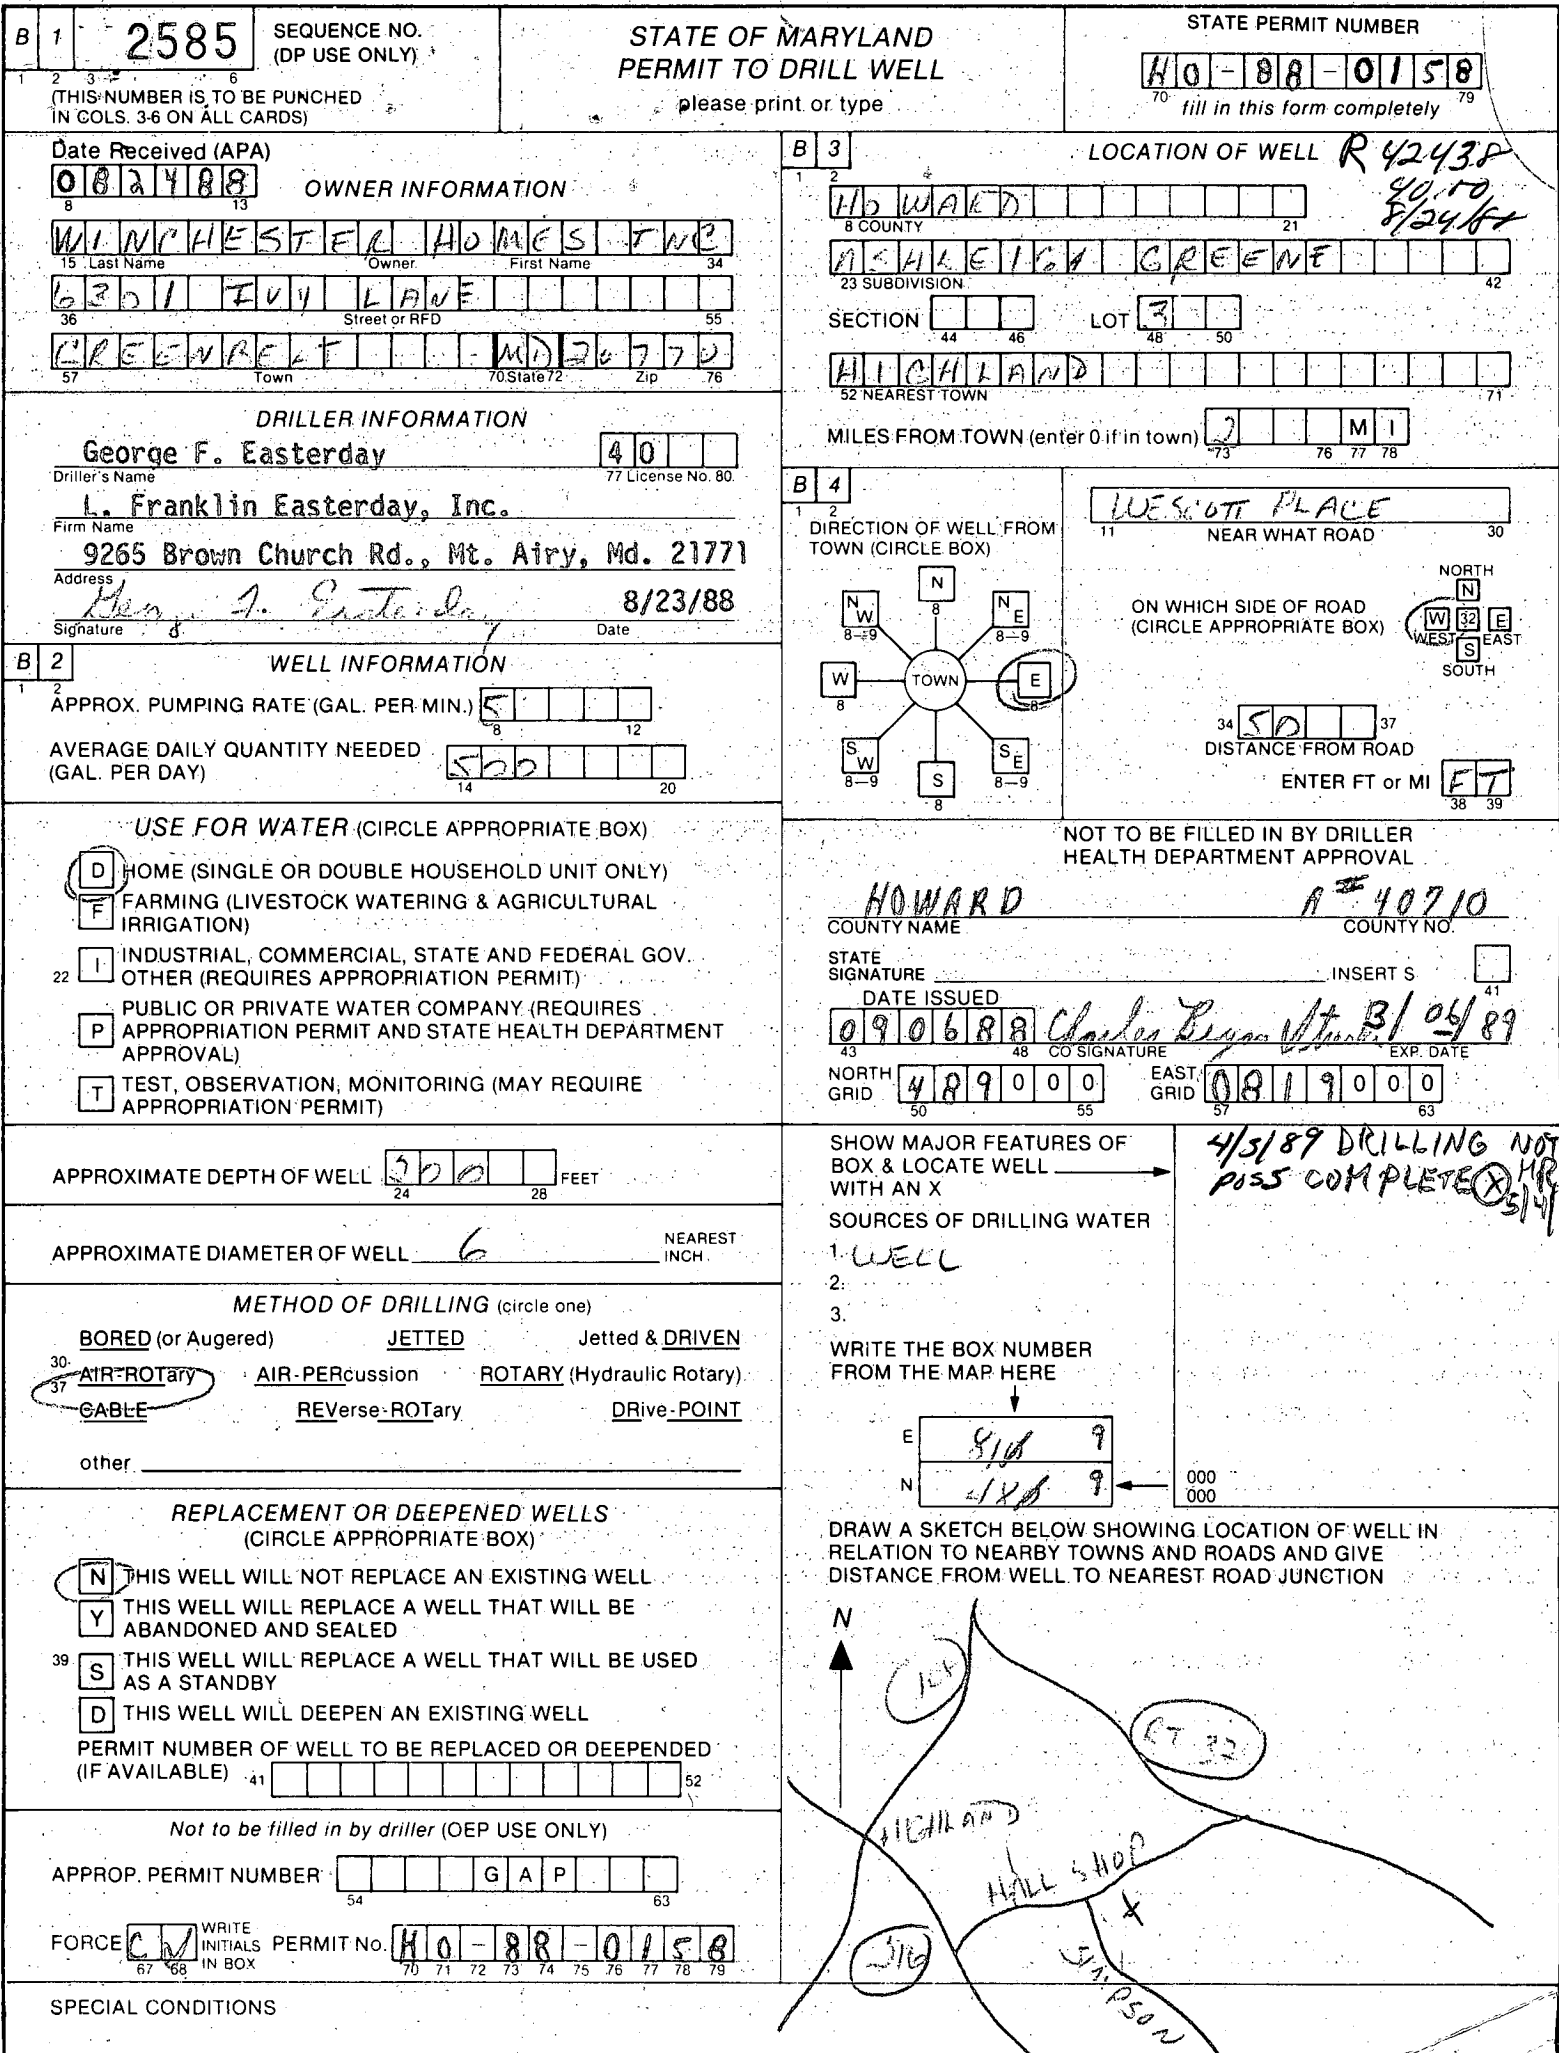 B 1 2585 SEQUENCE NO. (DP USE ONLY)
1 2 3 6
(THIS NUMBER IS TO BE PUNCHED IN COLS. 3-6 ON ALL CARDS)
STATE OF MARYLAND
PERMIT TO DRILL WELL
please print or type
STATE PERMIT NUMBER
HO-88-0158
70 79
fill in this form completely
Date Received (APA)
082488
8 13
OWNER INFORMATION
WINCHESTER HOMES INC
15 Last Name Owner First Name 34
6301 IVY LANE
36 Street or RFD 55
GREENBELT MD 20770
57 Town 70 State 72 Zip 76
DRILLER INFORMATION
George F. Easterday 40
Driller's Name 77 License No. 80
L. Franklin Easterday, Inc.
Firm Name
9265 Brown Church Rd., Mt. Airy, Md. 21771
Address
George F. Easterday 8/23/88
Signature Date
B 2 WELL INFORMATION
1 2
APPROX. PUMPING RATE (GAL. PER MIN.) 5
8 12
AVERAGE DAILY QUANTITY NEEDED (GAL. PER DAY) 500
14 20
USE FOR WATER (CIRCLE APPROPRIATE BOX)
D HOME (SINGLE OR DOUBLE HOUSEHOLD UNIT ONLY)
F FARMING (LIVESTOCK WATERING & AGRICULTURAL IRRIGATION)
22 I INDUSTRIAL, COMMERCIAL, STATE AND FEDERAL GOV. OTHER (REQUIRES APPROPRIATION PERMIT)
P PUBLIC OR PRIVATE WATER COMPANY (REQUIRES APPROPRIATION PERMIT AND STATE HEALTH DEPARTMENT APPROVAL)
T TEST, OBSERVATION, MONITORING (MAY REQUIRE APPROPRIATION PERMIT)
APPROXIMATE DEPTH OF WELL 300 FEET
24 28
APPROXIMATE DIAMETER OF WELL 6 NEAREST INCH
METHOD OF DRILLING (circle one)
BORED (or Augered) JETTED Jetted & DRIVEN
30- AIR-ROTary AIR-PERcussion ROTARY (Hydraulic Rotary)
37 CABLE REVerse-ROTary DRive-POINT
other
REPLACEMENT OR DEEPENED WELLS
(CIRCLE APPROPRIATE BOX)
N THIS WELL WILL NOT REPLACE AN EXISTING WELL
Y THIS WELL WILL REPLACE A WELL THAT WILL BE ABANDONED AND SEALED
39 S THIS WELL WILL REPLACE A WELL THAT WILL BE USED AS A STANDBY
D THIS WELL WILL DEEPEN AN EXISTING WELL
PERMIT NUMBER OF WELL TO BE REPLACED OR DEEPENDED
(IF AVAILABLE) 41 52
Not to be filled in by driller (OEP USE ONLY)
APPROP. PERMIT NUMBER GAP
54 63
FORCE WRITE INITIALS IN BOX PERMIT No. HO-88-0158
67 68 70 71 72 73 74 75 76 77 78 79
SPECIAL CONDITIONS
B 3 LOCATION OF WELL R 42438
1 2
40.00
8/24/88
HOWARD
8 COUNTY 21
ASHLEIGH GREENE
23 SUBDIVISION 42
SECTION LOT 3
44 46 48 50
HIGHLAND
52 NEAREST TOWN 71
MILES FROM TOWN (enter 0 if in town) 2 MI
73 76 77 78
B 4
1 2
DIRECTION OF WELL FROM TOWN (CIRCLE BOX)
N 8
NW 8-9 NE 8-9
W 8 TOWN E 8
SW 8-9 SE 8-9
S 8
WESCOTT PLACE
11 NEAR WHAT ROAD 30
ON WHICH SIDE OF ROAD (CIRCLE APPROPRIATE BOX)
NORTH N
W 32 E
WEST EAST
S SOUTH
34 50 37
DISTANCE FROM ROAD
ENTER FT or MI FT
38 39
NOT TO BE FILLED IN BY DRILLER
HEALTH DEPARTMENT APPROVAL
HOWARD A# 40710
COUNTY NAME COUNTY NO.
STATE SIGNATURE INSERT S
41
DATE ISSUED
090688 3/06/89
43 48 CO SIGNATURE EXP. DATE
NORTH GRID 489000 EAST GRID 0819000
50 55 57 63
SHOW MAJOR FEATURES OF BOX & LOCATE WELL WITH AN X
4/5/89 DRILLING NOT
POSS COMPLETE X
SOURCES OF DRILLING WATER
1. WELL
2.
3.
WRITE THE BOX NUMBER FROM THE MAP HERE
E 810 9
N 480 9
000
000
DRAW A SKETCH BELOW SHOWING LOCATION OF WELL IN RELATION TO NEARBY TOWNS AND ROADS AND GIVE DISTANCE FROM WELL TO NEAREST ROAD JUNCTION
N
RT 32
HIGHLAND
HALL SHOP
X
216
SIMPSON